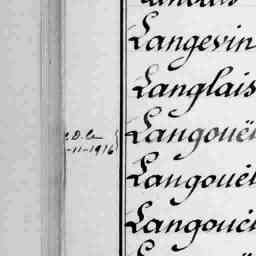 Langevin
Langlais
-11-1916
Langouë
Langouët
Langouët